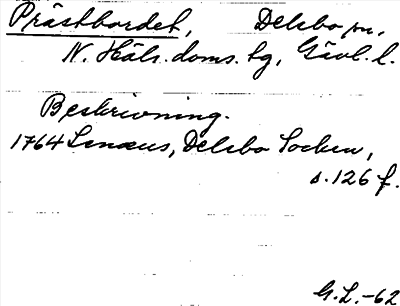 Prästbordet, Delsbo sn,
N. Häls. doms. tg, Gävl. l.
Beskrivning.
1764 Lenæus, Delsbo Socken,
s. 126 f.
G.L.-62